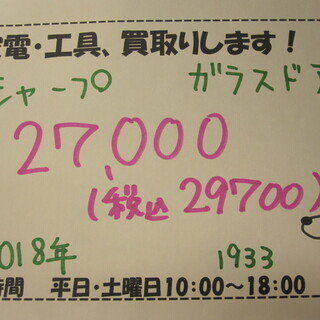 電・工具、買取りします!
シャープ ガラスドア
27,000
(税込 29700)
2018年 1933
時間 平日・土曜日10:00~18:00